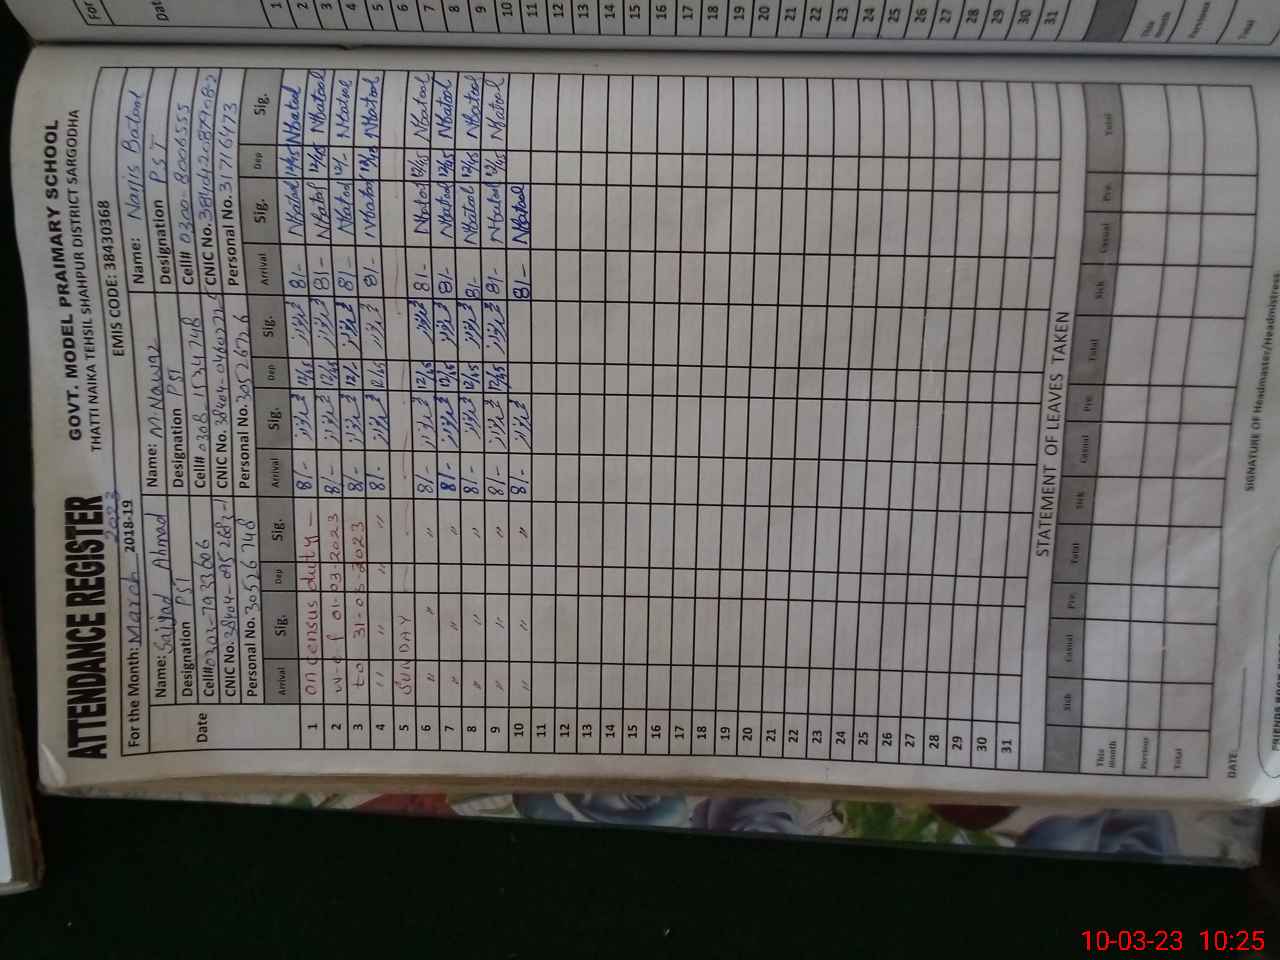 ATTENDANCE REGISTER
GOVT. MODEL PRAIMARY SCHOOL
THATTI NAIKA TEHSIL SHAHPUR DISTRICT SARGODHA
2023
For the Month: March 2018-19
EMIS CODE: 38430368
Name: Sajjad Ahmad Name: M. Nawaz Name: Narjis Batool
Designation PST Designation PST Designation PST
Cell# 0302-7933606 Cell# 0308-1534748 Cell# 0300-8006555
CNIC No. CNIC No. CNIC No.
Personal No. 30526748 Personal No. 30526726 Personal No. 31716473
Date Arrival Sig. Dep Sig. Arrival Sig. Dep Sig. Arrival Sig. Dep Sig.
1 on census duty — 8/- 12/45 8/- NBatool 12/45 NBatool
2 w.e.f 01-03-2023 8/- 12/45 8/- NBatool 12/45 NBatool
3 to 31-03-2023 8/- 12/- 8/- NBatool 12/- NBatool
4 " " " " 8/- 12/45 8/- NBatool 12/45 NBatool
5 SUNDAY
6 " " " 8/- 12/45 8/- NBatool 12/45 NBatool
7 " " " 8/- 12/45 8/- NBatool 12/45 NBatool
8 " " " 8/- 12/45 8/- NBatool 12/45 NBatool
9 " " " 8/- 12/45 8/- NBatool 12/45 NBatool
10 " " " 8/- 8/- NBatool
11
12
13
14
15
16
17
18
19
20
21
22
23
24
25
26
27
28
29
30
31
STATEMENT OF LEAVES TAKEN
Sick Casual Pre. Total Sick Casual Pre. Total Sick Casual Pre. Total
This Month
Previous
Total
DATE:
SIGNATURE OF Headmaster/Headmistress:
For
Dat
1
2
3
4
5
6
7
8
9
10
11
12
13
14
15
16
17
18
19
20
21
22
23
24
25
26
27
28
29
30
31
This Month
Previous
Total
10-03-23 10:25